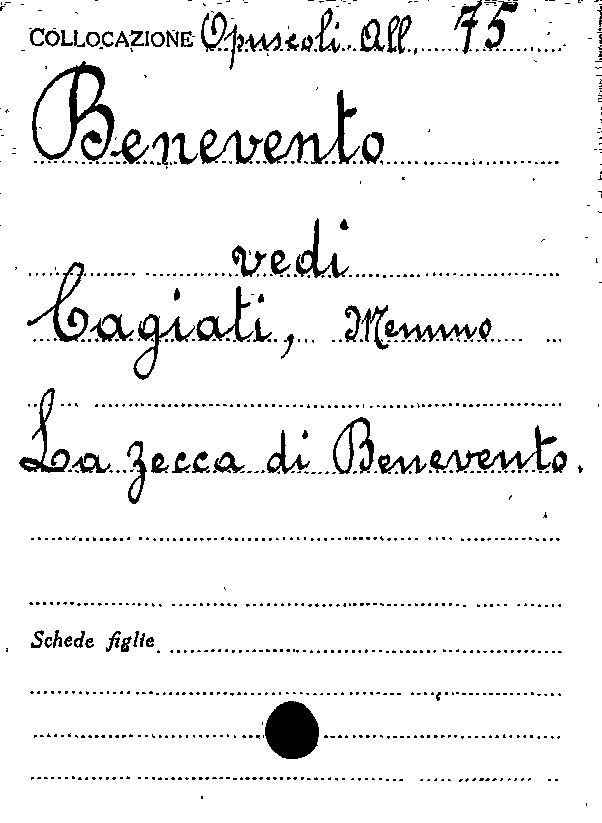 COLLOCAZIONE Opuscoli All. 75
Benevento
vedi
Cagiati, Memmo
La zecca di Benevento.
Schede figlie